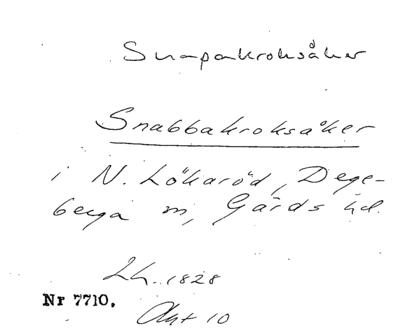 Snapakroksåker
Snabbakroksåker
i N. Lökaröd, Dege-
berga m, Gärds hd.
Lh. 1828
Nr 7710.
Akt 10